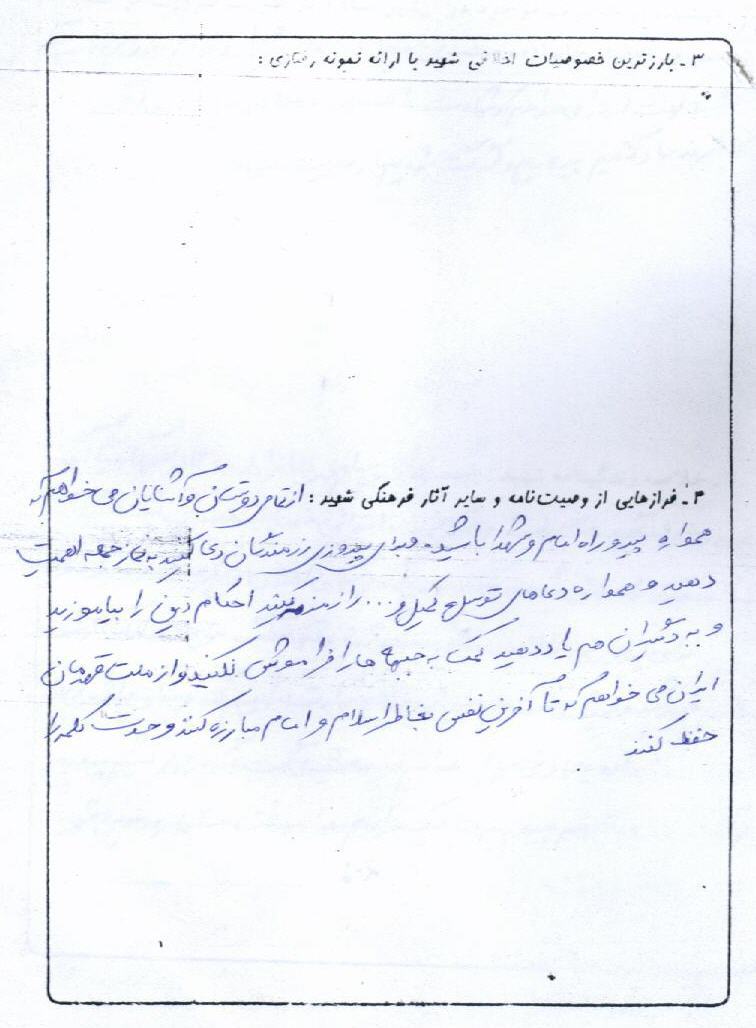 ۳ ـ بارزترین خصوصیات اخلاقی شهید با ارائه نمونه رفتاری :
۴ ـ فرازهایی از وصیت‌نامه و سایر آثار فرهنگی شهید : از تمامی دوستان و آشنایان می خواهم که
همواره پیرو راه امام و شهدا باشید. و برای پیروزی رزمندگان دعا کنید به نماز جمعه اهمیت
دهید و همواره دعاهای توسل و کمیل و... را زمزمه کنید احکام دین را بیاموزید
و به دیگران هم یاد دهید کمک به جبهه ها را فراموش نکنید و از ملت قهرمان
ایران می خواهم که تا آخرین نفس بخاطر اسلام و امام مبارزه کنند وحدت کلمه را
حفظ کنند